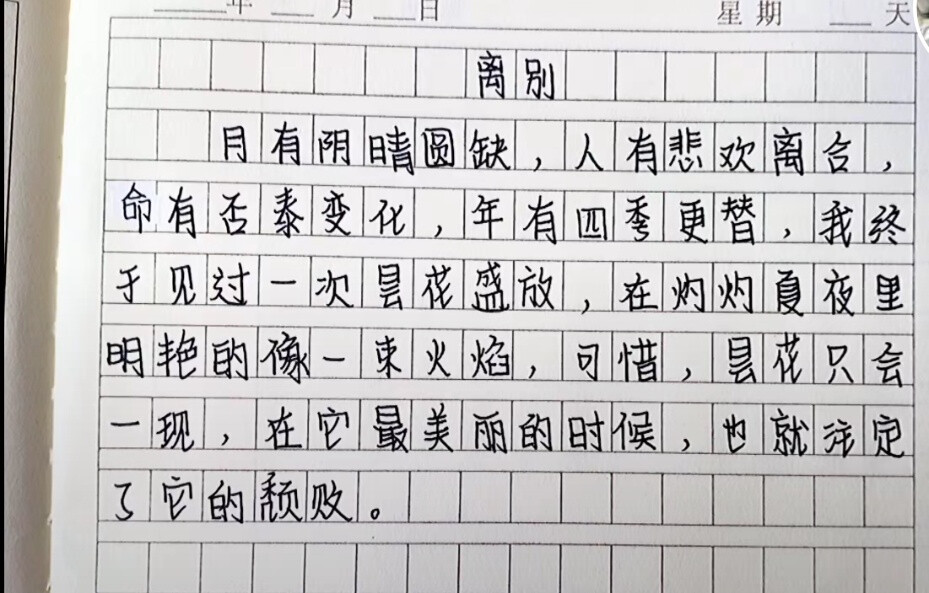 年 月 日 星期 天
离别
月有阴晴圆缺，人有悲欢离合，
命有否泰变化，年有四季更替，我终
于见过一次昙花盛放，在灼灼夏夜里
明艳的像一束火焰，可惜，昙花只会
一现，在它最美丽的时候，也就注定
了它的颓败。